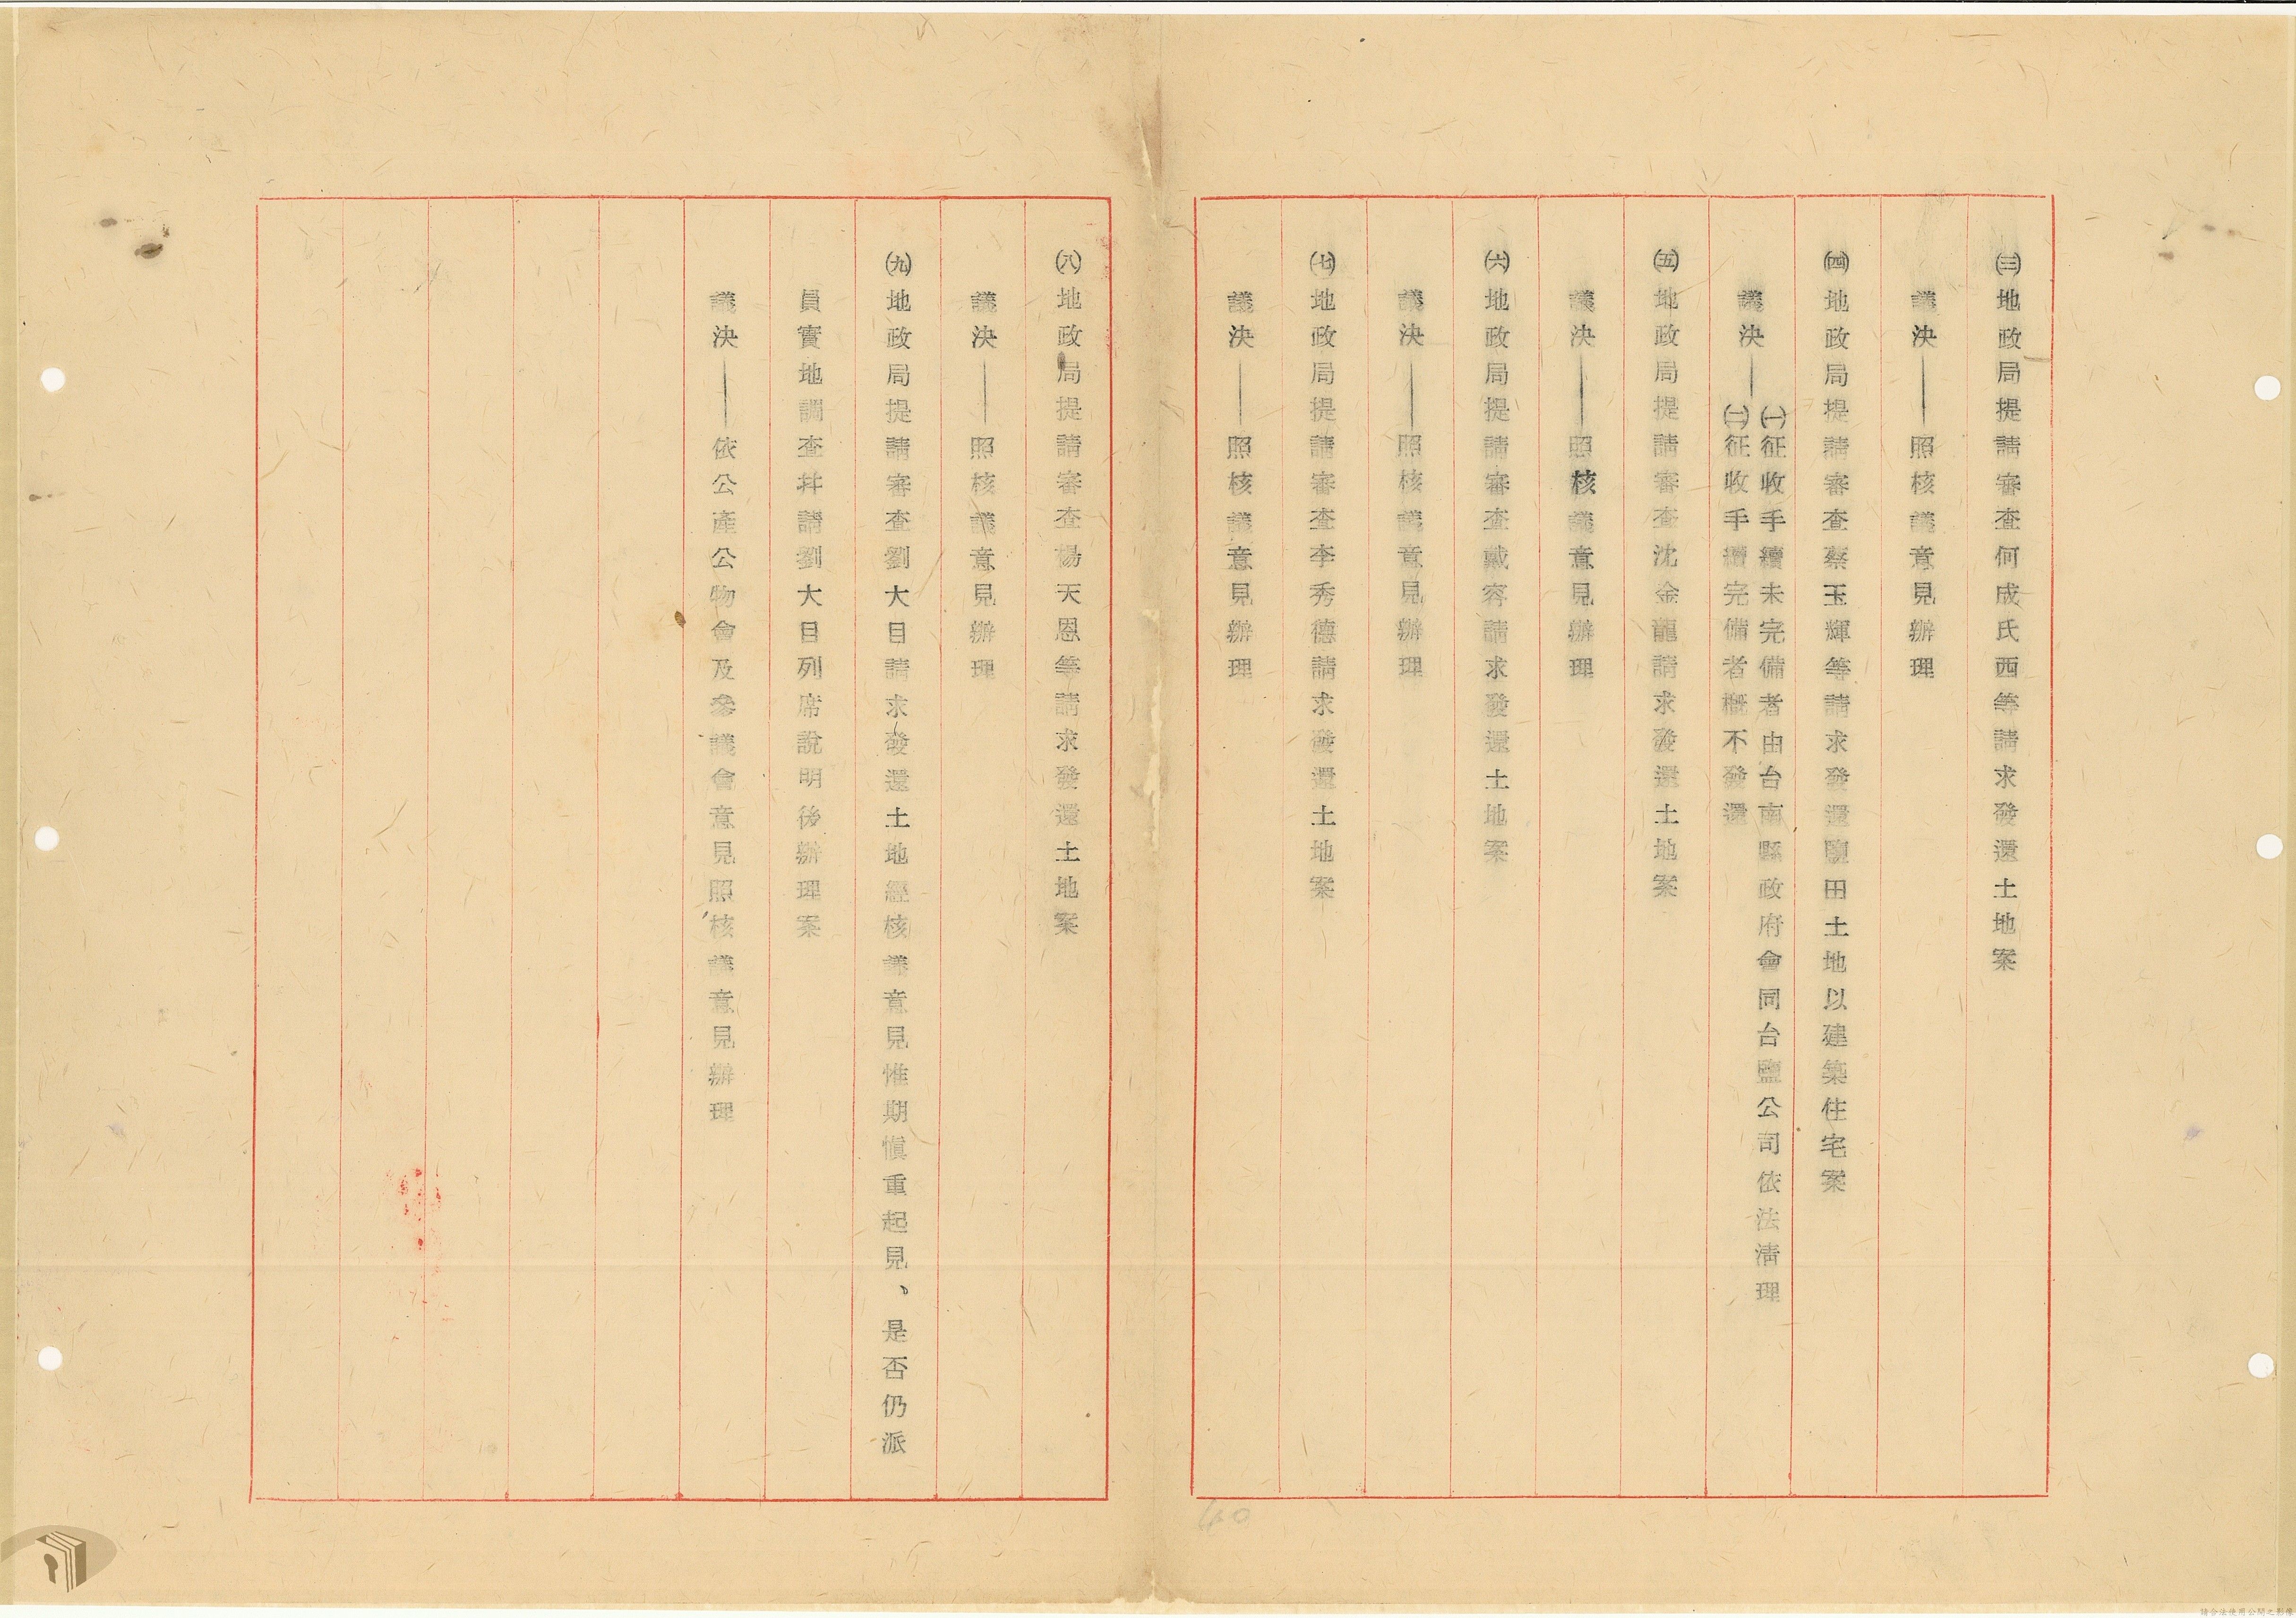 ㈢地政局提請審查何成氏西等請求發還土地案
議決——照核議意見辦理
㈣地政局提請審查蔡玉輝等請求發還鹽田土地以建築住宅案
議決—㈠征收手續未完備者由台南縣政府會同台鹽公司依法清理
㈡征收手續完備者概不發還
㈤地政局提請審查沈金龍請求發還土地案
議決——照核議意見辦理
㈥地政局提請審查戴容請求發還土地案
議決——照核議意見辦理
㈦地政局提請審查李秀德請求發還土地案
議決——照核議意見辦理
㈧地政局提請審查楊天恩等請求發還土地案
議決——照核議意見辦理
㈨地政局提請審查劉大目請求發還土地經核議意見惟期慎重起見、是否仍派
員實地調查并請劉大目列席說明後辦理案
議決——依公產公物會及參議會意見照核議意見辦理
40